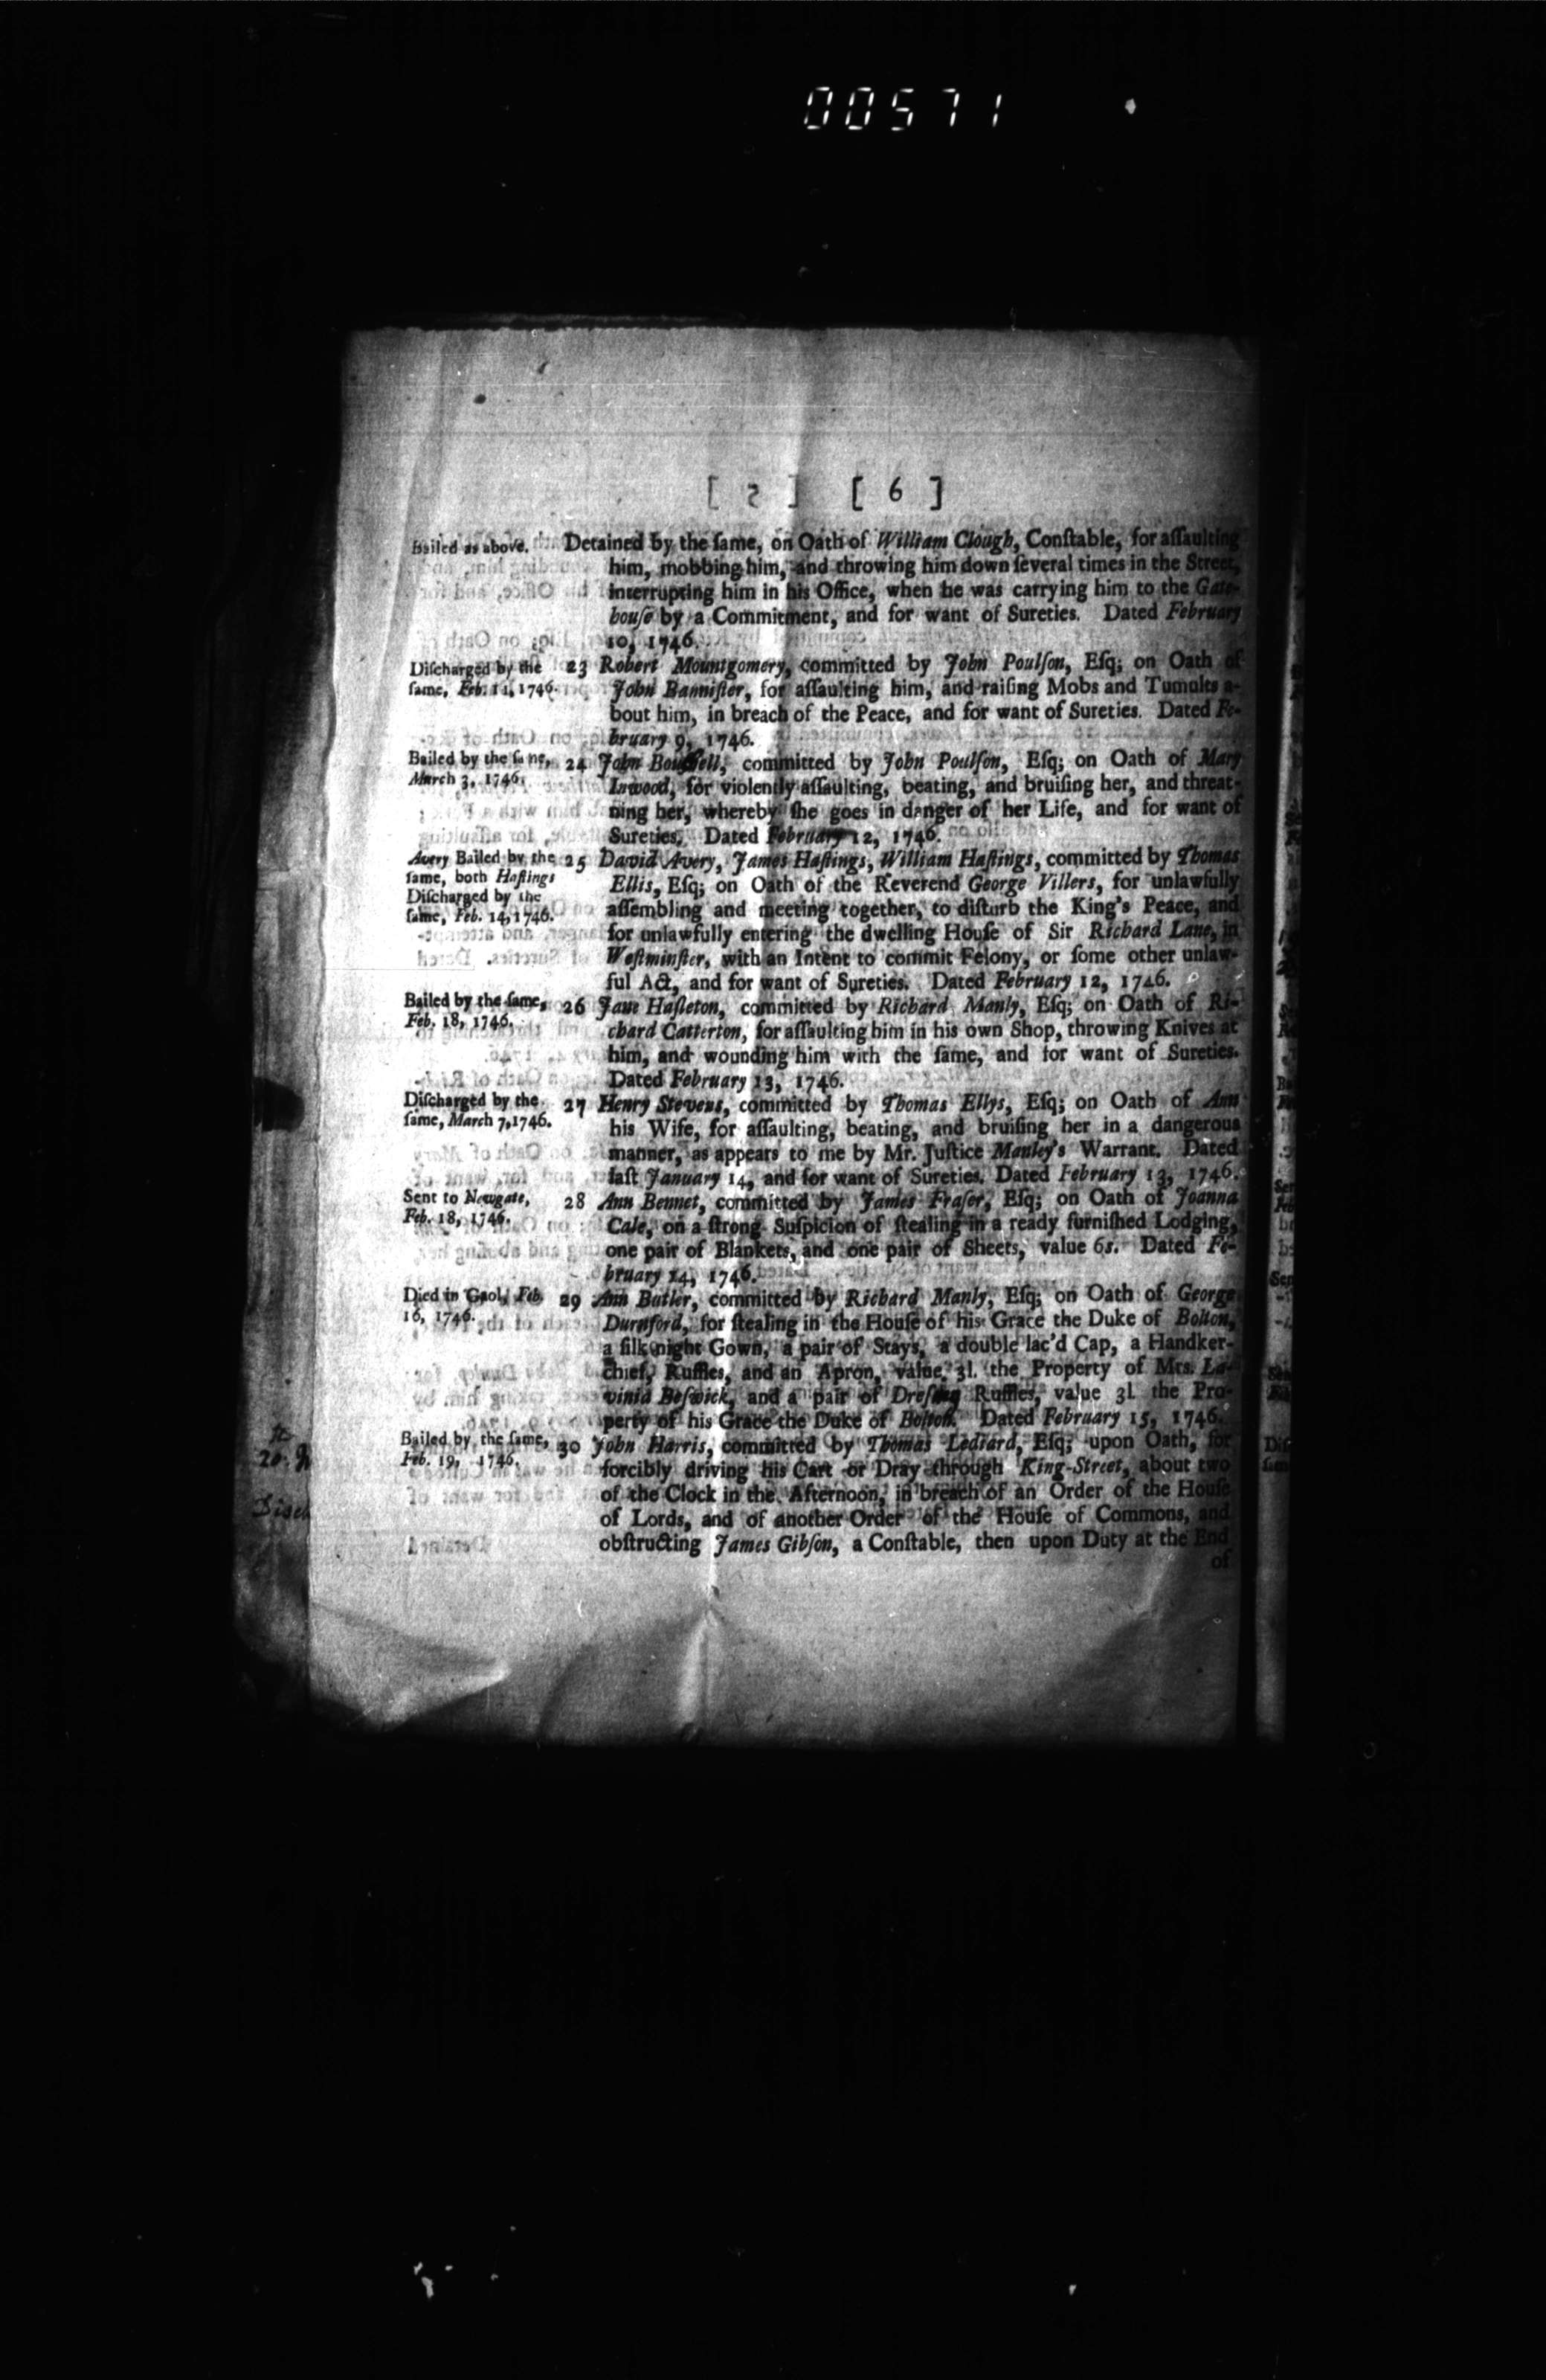 00571
[ 6 ]
Bailed as above. Detained by the ſame, on Oath of William Clough, Conſtable, for aſſaulting
him, mobbing him, and throwing him down ſeveral times in the Street,
interrupting him in his Office, when he was carrying him to the Gate-
houſe by a Commitment, and for want of Sureties. Dated February
10, 1746.
Diſcharged by the 23 Robert Mountgomery, committed by John Poulſon, Eſq; on Oath of
ſame, Feb. 11, 1746. John Banniſter, for aſſaulting him, and raiſing Mobs and Tumults a-
bout him, in breach of the Peace, and for want of Sureties. Dated Fe-
bruary 9, 1746.
Bailed by the ſame, 24 John committed by John Poulſon, Eſq; on Oath of Mary
March 3, 1746. Inwood, for violently aſſaulting, beating, and bruiſing her, and threat-
ning her, whereby ſhe goes in danger of her Life, and for want of
Sureties. Dated February 12, 1746.
Avery Bailed by the 25 David Avery, James Haſtings, William Haſtings, committed by Thomas
ſame, both Haſtings Ellis, Eſq; on Oath of the Reverend George Villers, for unlawfully
Diſcharged by the aſſembling and meeting together, to diſturb the King's Peace, and
ſame, Feb. 14, 1746. for unlawfully entering the dwelling Houſe of Sir Richard Lane, in
Weſtminſter, with an Intent to commit Felony, or ſome other unlaw-
ful Act, and for want of Sureties. Dated February 12, 1746.
Bailed by the ſame, 26 Jane Haſleton, committed by Richard Manly, Eſq; on Oath of Ri-
Feb. 18, 1746. chard Catterton, for aſſaulting him in his own Shop, throwing Knives at
him, and wounding him with the ſame, and for want of Sureties.
Dated February 13, 1746.
Diſcharged by the 27 Henry Stevens, committed by Thomas Ellys, Eſq; on Oath of Ann
ſame, March 7, 1746. his Wife, for aſſaulting, beating, and bruiſing her in a dangerous
manner, as appears to me by Mr. Juſtice Manley's Warrant. Dated
laſt January 14, and for want of Sureties. Dated February 13, 1746.
Sent to Newgate, 28 Ann Bennet, committed by James Fraſer, Eſq; on Oath of Joanna
Feb. 18, 1746. Cale, on a ſtrong Suſpicion of ſtealing in a ready furniſhed Lodging,
one pair of Blankets, and one pair of Sheets, value 6s. Dated Fe-
bruary 14, 1746.
Died in Gaol, Feb. 29 Ann Butler, committed by Richard Manly, Eſq; on Oath of George
16, 1746. Durnford, for ſtealing in the Houſe of his Grace the Duke of Bolton,
a ſilk night Gown, a pair of Stays, a double lac'd Cap, a Handker-
chief, Ruffles, and an Apron, value 3l. the Property of Mrs. La-
vinia Beſwick, and a pair of Dreſing Ruffles, value 3l. the Pro-
perty of his Grace the Duke of Bolton. Dated February 15, 1746.
Bailed by the ſame, 30 John Harris, committed by Thomas Lediard, Eſq; upon Oath, for
Feb. 19, 1746. forcibly driving his Cart or Dray through King-Street, about two
of the Clock in the Afternoon, in breach of an Order of the Houſe
of Lords, and of another Order of the Houſe of Commons, and
obſtructing James Gibſon, a Conſtable, then upon Duty at the End
of